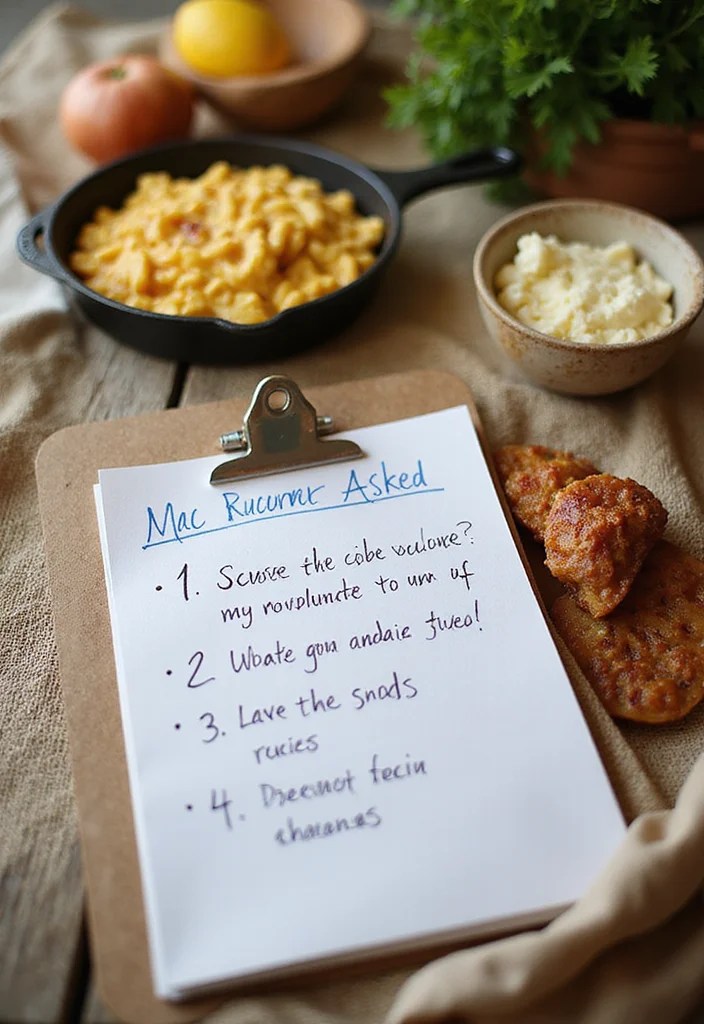 Mac Rucurnr Asked
• 1. Scuvse the cibe vuclowe?
my novplunte to um of
• 2 Wbate gou andaie fueo!
• 3. Lave the snods
rucies
• 4. Dreernot fecin